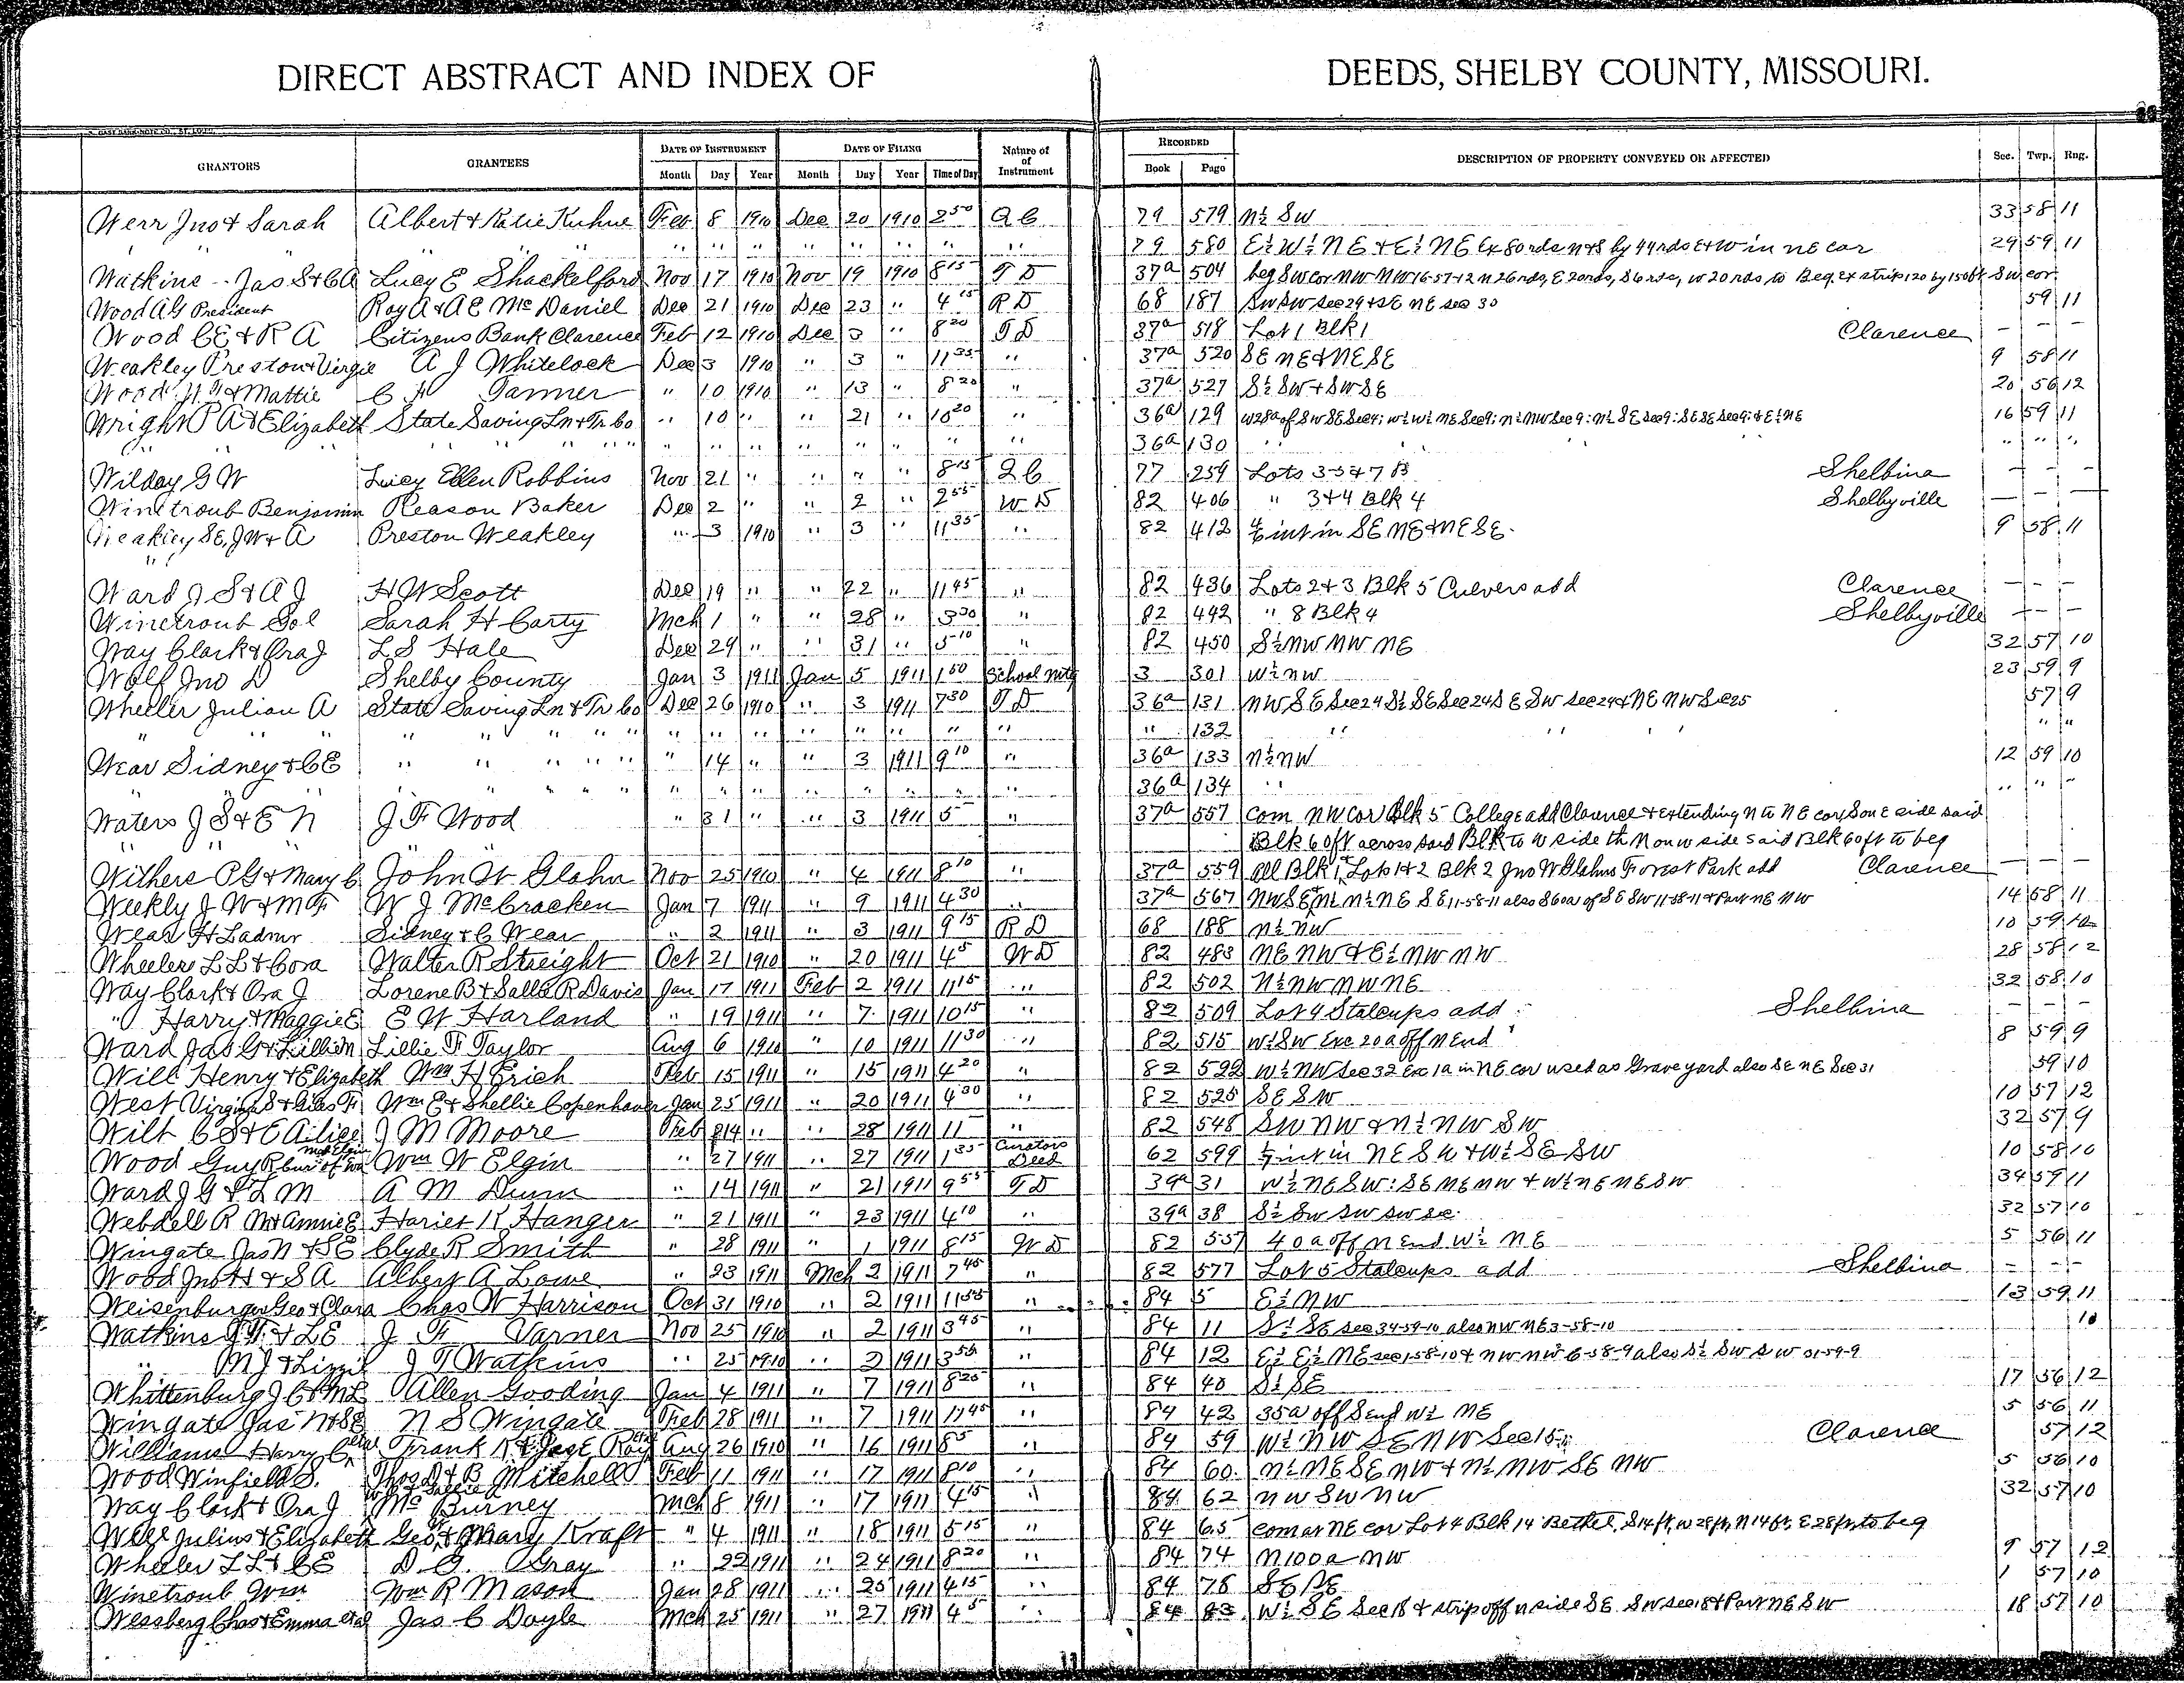 DIRECT ABSTRACT AND INDEX OF DEEDS, SHELBY COUNTY, MISSOURI.
GRANTORS GRANTEES DATE OF INSTRUMENT DATE OF FILING Nature of of Instrument RECORDED DESCRIPTION OF PROPERTY CONVEYED OR AFFECTED Sec. Twp. Rng.
Month Day Year Month Day Year Time of Day Book Page
Werr Jno & Sarah Albert & Katie Kuhne Feb 8 1910 Dec 20 1910 2 50 Q C 79 579 N½ SW 33 58 11
" " " " " " " " " 79 580 E½ W½ NE & E½ NE Ex 80 rds N & S by 44 rds E & W in NE cor 29 59 11
Watkins Jas S & C A Lucy E Shackelford Nov 17 1910 Nov 19 1910 8 15 T D 37a 504 beg SW cor NW NW 16-57-12 N 26 rds, E 20 rds, S 6 rds, W 20 rds to Beg. Ex strip 120 by 150 ft SW cor
Wood A G President Roy A & A E McDaniel Dec 21 1910 Dec 23 " 4 15 R D 68 187 SW SW Sec 29 & SE NE Sec 30 59 11
Wood C E & R A Citizens Bank Clarence Feb 12 1910 Dec 3 " 8 20 T D 37a 518 Lot 1 Blk 1 Clarence - - -
Weakley Preston & Virgie A J Whitelock Dec 3 1910 " 3 " 11 35 " 37a 520 SE NE & NE SE 9 58 11
Wood & Mattie C H Tanner " 10 1910 " 13 " 8 20 " 37a 527 S½ SW & SW SE 20 56 12
Wright P A & Elizabeth State Saving Ln & Tr Co " 10 " " 21 " 10 20 " 36a 129 W 28a of SW SE Sec 4; W½ W½ NE Sec 9; N½ NW Sec 9; N½ SE Sec 9; SE SE Sec 9; & E½ NE 16 59 11
" " " " " " " " 36a 130 " " " "
Wilday G W Lucy Ellen Robbins Nov 21 " " " " 8 15 Q C 77 259 Lots 3-5 & 7 B Shelbina - - -
Winetroub Benjamin Reason Baker Dec 2 " " 2 " 2 55 W D 82 406 " 3 & 4 Blk 4 Shelbyville - - -
Weakley SE, J W & A Preston Weakley " 3 1910 " 3 " 11 35 " 82 412 int in SE NE & NE SE 9 58 11
Ward J S & A J H W Scott Dec 19 " " 22 " 11 45 " 82 436 Lots 2 & 3 Blk 5 Culvers add Clarence - - -
Winetroub Sol Sarah H Carty Mch 1 " " 28 " 3 30 " 82 442 " 8 Blk 4 Shelbyville - - -
Way Clark & Ora J L S Hale Dec 29 " " 31 " 5 10 " 82 450 S½ NW NW NE 32 57 10
Wolf Jno D Shelby County Jan 3 1911 Jan 5 1911 1 50 School Mtg 3 301 W½ NW 23 59 9
Wheeler Julian A State Saving Ln & Tr Co Dec 26 1910 " 3 1911 7 30 T D 36a 131 NW SE Sec 24 S½ SE Sec 24 SE SW Sec 24 & NE NW Sec 25 57 9
" " " " " " " " " " 132 " " " "
Wear Sidney & C E " " " " " " 14 " " 3 1911 9 10 " 36a 133 N½ NW 12 59 10
" " " " " " " " 36a 134 " " " "
Waters J S & E N J F Wood " 31 " " 3 1911 5 " 37a 557 Com NW cor Blk 5 College add Clarence & Extending N to NE cor, S on E side said
Blk 60 ft across said Blk to W side th N on W side said Blk 60 ft to beg
Withers P G & Mary C John W Glahn Nov 25 1910 " 4 1911 8 10 " 37a 559 All Blk 1, Lots 1 & 2 Blk 2 Jno W Glahns Forrest Park add Clarence - - -
Weekly J W & M F W J McCracken Jan 7 1911 " 9 1911 4 30 " 37a 567 NW SE, N½ N½ NE SE 11-58-11 also S 60a of SE SW 11-58-11 & Part NE NW 14 58 11
Wear H L admr Sidney & C Wear " 2 1911 " 3 1911 9 15 R D 68 188 N½ NW 10 59 10
Wheeler L L & Cora Walter R Streight Oct 21 1910 " 20 1911 4 5 W D 82 483 NE NW & E½ NW NW 28 58 12
Way Clark & Ora J Lorene B & Salla R Davis Jan 17 1911 Feb 2 1911 11 15 " 82 502 N½ NW NW NE 32 58 10
" Harry & Maggie E E W Harland " 19 1911 " 7 1911 10 15 " 82 509 Lot 9 Stalcups add Shelbina - - -
Ward Jas G & Lillian Lillie F Taylor Aug 6 1910 " 10 1911 11 30 " 82 515 W½ SW Exc 20a off N End 8 59 9
Will Henry & Elizabeth Wm H Erich Feb 15 1911 " 15 1911 4 20 " 82 522 W½ NW Sec 32 Exc 1a in NE cor used as Grave yard also SE NE Sec 31 59 10
West Virginia S & Giles F Wm E & Shellie Copenhaver Jan 25 1911 " 20 1911 4 30 " 82 525 SE SW 10 57 12
Wilt C S & E Ailice J M Moore Feb 14 " " 28 1911 11 " 82 548 SW NW & N½ NW SW 32 57 9
Wood Guy R cur of Wm W Elgin " 27 1911 " 27 1911 1 35 Curators Deed 62 599 int in NE SW & W½ SE SW 10 58 10
Ward J G & L M A M Dunn " 14 1911 " 21 1911 9 55 T D 39a 31 W½ NE SW: SE NE NW & W½ NE NE SW 34 59 11
Webdell R M & Annie E Hariet K Hanger " 21 1911 " 23 1911 4 10 " 39a 38 S½ SW SW SW SE 32 57 10
Wingate Jas N & S E Clyde R Smith " 28 1911 " 1 1911 8 15 W D 82 557 40a off N End W½ NE 5 56 11
Wood Jno H & S A Albert A Lowe " 23 1911 Mch 2 1911 7 45 " 82 577 Lot 5 Stalcups add Shelbina - - -
Weisenburger Geo & Clara Chas W Harrison Oct 31 1910 " 2 1911 11 55 " 84 5 E½ NW 13 59 11
Watkins J T & L E J Fr Varner Nov 25 1910 " 2 1911 3 45 " 84 11 S½ SE Sec 34-59-10 also NW NE 3-58-10 10
" M J & Lizzie J T Watkins " 25 1910 " 2 1911 3 50 " 84 12 E½ E½ NE Sec 1-58-10 & NW NW 6-58-9 also S½ SW SW 31-59-9
Whittenburg J C & M L Allen Gooding Jan 4 1911 " 7 1911 8 25 " 84 40 S½ SE 17 56 12
Wingate Jas N & S E N S Wingate Feb 28 1911 " 7 1911 11 45 " 84 42 35a off S end W½ NE 5 56 11
Williams Harry C etal Frank K & Jas E Roy Aug 26 1910 " 16 1911 8 5 " 84 59 W½ NW SE NW Sec 15 Clarence 57 12
Wood Winfield S. Thos D & B Mitchell Feb 11 1911 " 17 1911 8 10 " 84 60 N½ NE SE NW & N½ NW SE NW 5 56 10
Way Clark & Ora J McBurney Mch 8 1911 " 17 1911 4 15 " 84 62 NW SW NW 32 57 10
Julius & Elizabeth Geo & Mary Kraft " 4 1911 " 18 1911 5 15 " 84 65 com at NE cor Lot 4 Blk 14 Bethel, S 14 ft, W 28 ft, N 14 ft, E 28 ft, to beg
Wheeler L L & C E D G. Gray " 22 1911 " 24 1911 8 20 " 84 74 N 100a NW 9 57 12
Winetroub Wm Wm R Mason Jan 28 1911 " 25 1911 4 15 " 84 78 SE SE 1 57 10
Wessberg Chas & Emma etal Jas C Doyle Mch 25 1911 " 27 1911 4 5 " 84 83 W½ SE Sec 18 & strip off N side SE SW Sec 18 & Part NE SW 18 57 10